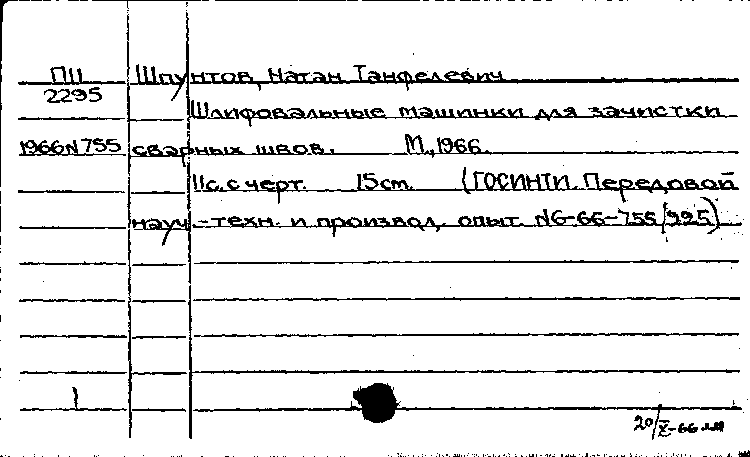 ПII Шпунтов, Натан Танфелевич
2295
Шлифовальные машинки для зачистки
1966N755 сварных швов. М., 1966.
11с. с черт. 15см. (ГОСИНТИ. Передовой
науч.-техн. и производ. опыт. N6-66-755/995)
1
20/X-66